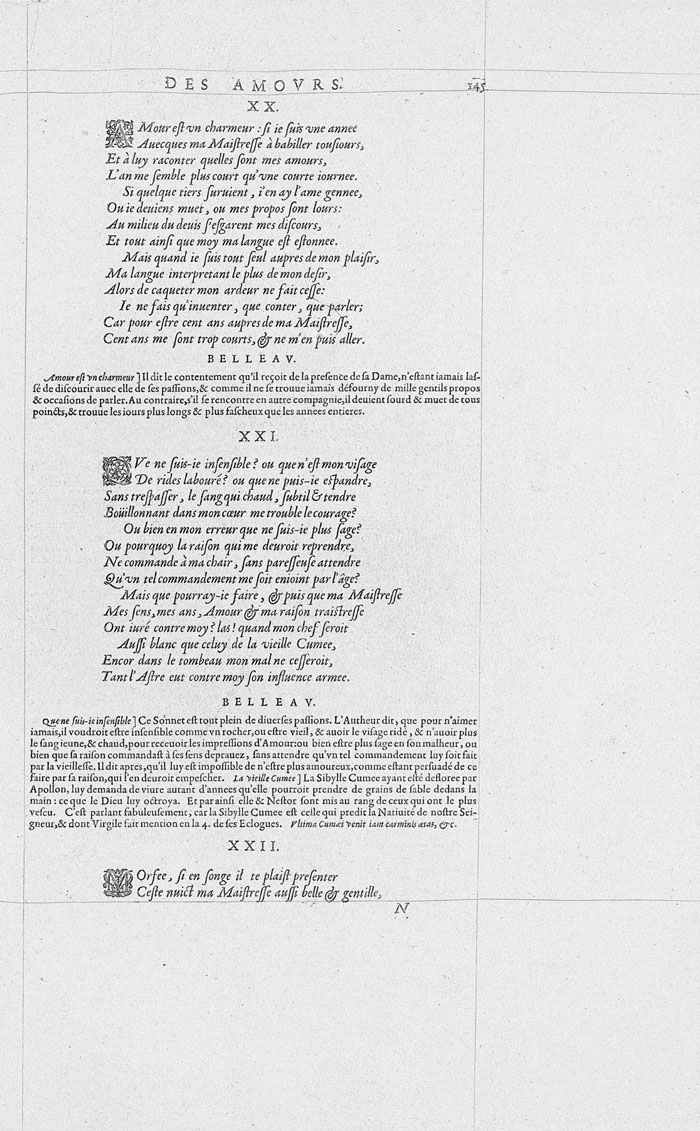 DES AMOVRS.
145
XX.
AMour est vn charmeur : si ie suis vne annee
Auecques ma Maistresse à babiller tousiours,
Et à luy raconter quelles sont mes amours,
L'an me semble plus court qu'vne courte iournee.
Si quelque tiers suruient, i'en ay l'ame gennee,
Ou ie deuiens muet, ou mes propos sont lours:
Au milieu du deuis s'esgarent mes discours,
Et tout ainsi que moy ma langue est estonnee.
Mais quand ie suis tout seul aupres de mon plaisir,
Ma langue interpretant le plus de mon desir,
Alors de caqueter mon ardeur ne fait cesse:
Ie ne fais qu'inuenter, que conter, que parler;
Car pour estre cent ans aupres de ma Maistresse,
Cent ans me sont trop courts, & ne m'en puis aller.
BELLEAV.
Amour est vn charmeur ] Il dit le contentement qu'il reçoit de la presence de sa Dame, n'estant iamais las-
sé de discourir auec elle de ses passions, & comme il ne se trouue iamais défourny de mille gentils propos
& occasions de parler. Au contraire, s'il se rencontre en autre compagnie, il deuient sourd & muet de tous
poincts, & trouue les iours plus longs & plus fascheux que les annees entieres.
XXI.
QVe ne suis-ie insensible? ou que n'est mon visage
De rides labouré? ou que ne puis-ie espandre,
Sans trespasser, le sang qui chaud, subtil & tendre
Boüillonnant dans mon cœur me trouble le courage?
Ou bien en mon erreur que ne suis-ie plus sage?
Ou pourquoy la raison qui me deuroit reprendre,
Ne commande à ma chair, sans paresseuse attendre
Qu'vn tel commandement me soit enioint par l'âge?
Mais que pourray-ie faire, & puis que ma Maistresse
Mes sens, mes ans, Amour & ma raison traistresse
Ont iuré contre moy? las! quand mon chef seroit
Aussi blanc que celuy de la vieille Cumee,
Encor dans le tombeau mon mal ne cesseroit,
Tant l'Astre eut contre moy son influence armee.
BELLEAV.
Que ne suis-ie insensible ] Ce Sonnet est tout plein de diuerses passions. L'Autheur dit, que pour n'aimer
iamais, il voudroit estre insensible comme vn rocher, ou estre vieil, & auoir le visage ridé, & n'auoir plus
le sang ieune, & chaud, pour receuoir les impressions d'Amour: ou bien estre plus sage en son malheur, ou
bien que sa raison commandast à ses sens deprauez, sans attendre qu'vn tel commandement luy soit fait
par la vieillesse. Il dit apres, qu'il luy est impossible de n'estre plus amoureux, comme estant persuadé de ce
faire par sa raison, qui l'en deuroit empescher. La vieille Cumee ] La Sibylle Cumee ayant esté defloree par
Apollon, luy demanda de viure autant d'annees qu'elle pourroit prendre de grains de sable dedans la
main : ce que le Dieu luy octroya. Et par ainsi elle & Nestor sont mis au rang de ceux qui ont le plus
vescu. C'est parlant fabuleusement, car la Sibylle Cumee est celle qui predit la Natiuité de nostre Sei-
gneur, & dont Virgile fait mention en la 4. de ses Eclogues. Vltima Cumæi venit iam carminis ætas, &c.
XXII.
MOrfee, si en songe il te plaist presenter
Ceste nuict ma Maistresse aussi belle & gentille,
N